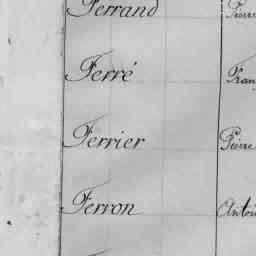 Ferrand
Ferré
Ferrier Pierre
Ferron